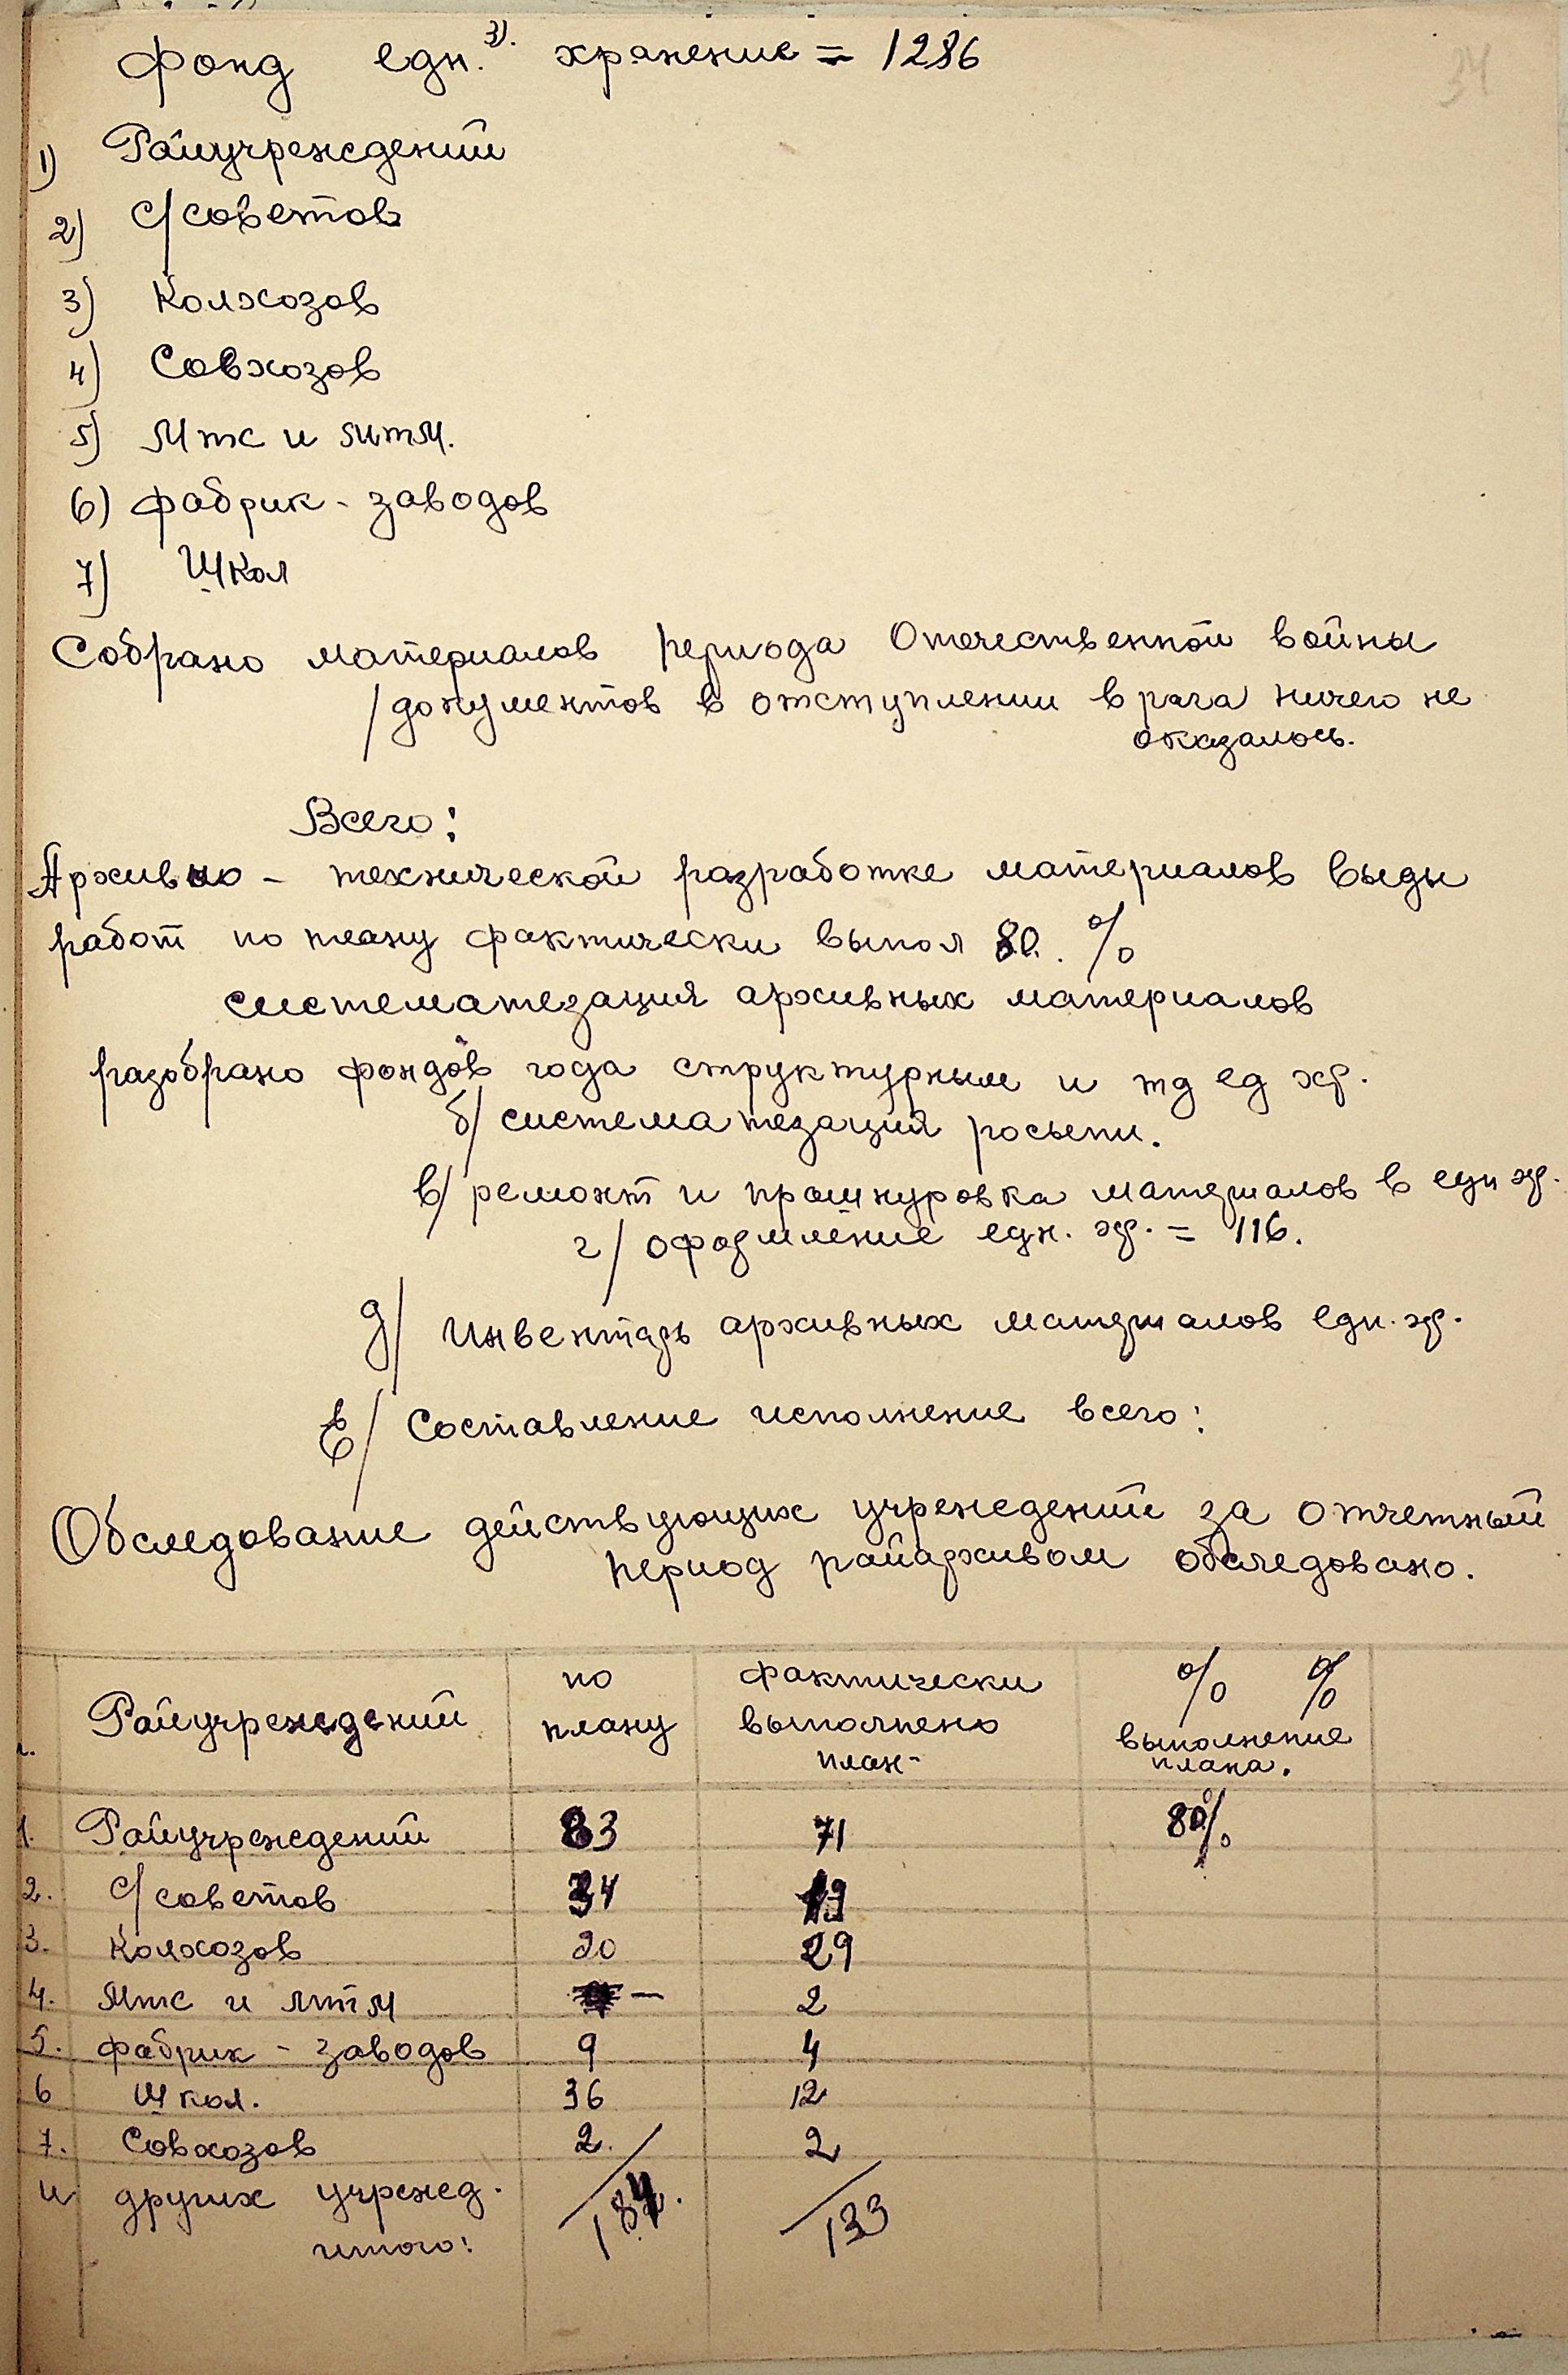 34
фонд едн. 3). хранение = 1286
1) Райучреждений
2) с/советов
3) Колхозов
4) Совхозов
5) Мтс и мтм.
6) фабрик - заводов
7) Школ
Собрано материалов периода Отечественной войны
/документов в отступлении врага ничего не
оказалось.
Всего:
Архивно - технической разработке материалов выды
работ по плану фактически выпол 80. %
систематезация архивных материалов
разобрано фондов года структурным и тд ед хр.
б/ систематезация росыпи.
в/ ремонт и прошнуровка материалов в едн хр.
г/ оформление едн. хр. = 116.
д/ Инвентарь архивных материалов едн. хр.
Е/ Составление исполнение всего:
Обследование действующих учреждений за отчетный
период райархивом обследовано.
Райучреждений по плану фактически выполнено план- % % выполнение плана.
1. Райучреждений 83 71 80%
2. с/советов 34 13
3. Колхозов 20 29
4. Мтс и мтм — 2
5. фабрик - заводов 9 4
6 Школ. 36 12
7. Совхозов 2. 2
и других учрежд.
итого: 184. 133